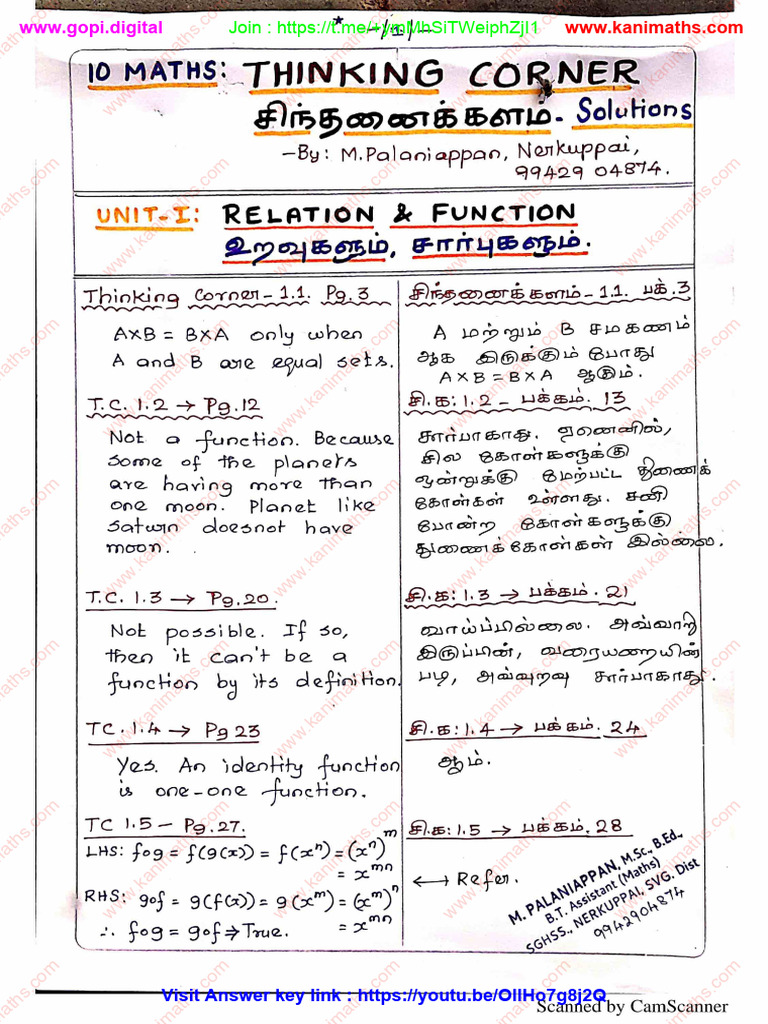 www.gopi.digital Join : https://t.me/+ymMhSiTWeiphZjI1 www.kanimaths.com
* -/1/-
10 MATHS: THINKING CORNER
சிந்தனைக்களம். Solutions
-By: M.Palaniappan, Nerkuppai,
99429 04874.
UNIT-I: RELATION & FUNCTION
உறவுகளும், சார்புகளும்.
Thinking Corner-1.1. Pg.3
A×B = B×A only when
A and B are equal sets.
T.C. 1.2 → Pg.12
Not a function. Because
some of the planets
are having more than
one moon. Planet like
saturn doesnot have
moon.
T.C. 1.3 → Pg.20.
Not possible. If so,
then it can't be a
function by its definition.
TC. 1.4 → Pg 23
Yes. An identity function
is one-one function.
TC 1.5 - Pg.27.
LHS: fog = f(g(x)) = f(xⁿ) = (xⁿ)ᵐ
= xᵐⁿ
RHS: gof = g(f(x)) = g(xᵐ) = (xᵐ)ⁿ
= xᵐⁿ
∴ fog = gof ⇒ True.
சிந்தனைக்களம்-1.1. பக்.3
A மற்றும் B சமகணம்
ஆக இருக்கும் போது
A×B = B×A ஆகும்.
சி.க: 1.2 - பக்கம். 13
சார்பாகாது. ஏனெனில்,
சில கோள்களுக்கு
ஒன்றுக்கு மேற்பட்ட துணைக்
கோள்கள் உள்ளது. சனி
போன்ற கோள்களுக்கு
துணைக்கோள்கள் இல்லை.
சி.க: 1.3 → பக்கம். 21
வாய்ப்பில்லை. அவ்வாறு
இருப்பின், வரையறையின்
படி, அவ்வுறவு சார்பாகாது.
சி.க: 1.4 → பக்கம். 24
ஆம்.
சி.க: 1.5 → பக்கம். 28
↔ Refer.
M. PALANIAPPAN, M.Sc., B.Ed.,
B.T. Assistant (Maths)
SGHSS., NERKUPPAI, SVG. Dist
9942904874
Visit Answer key link : https://youtu.be/OlIHo7g8j2Q
Scanned by CamScanner